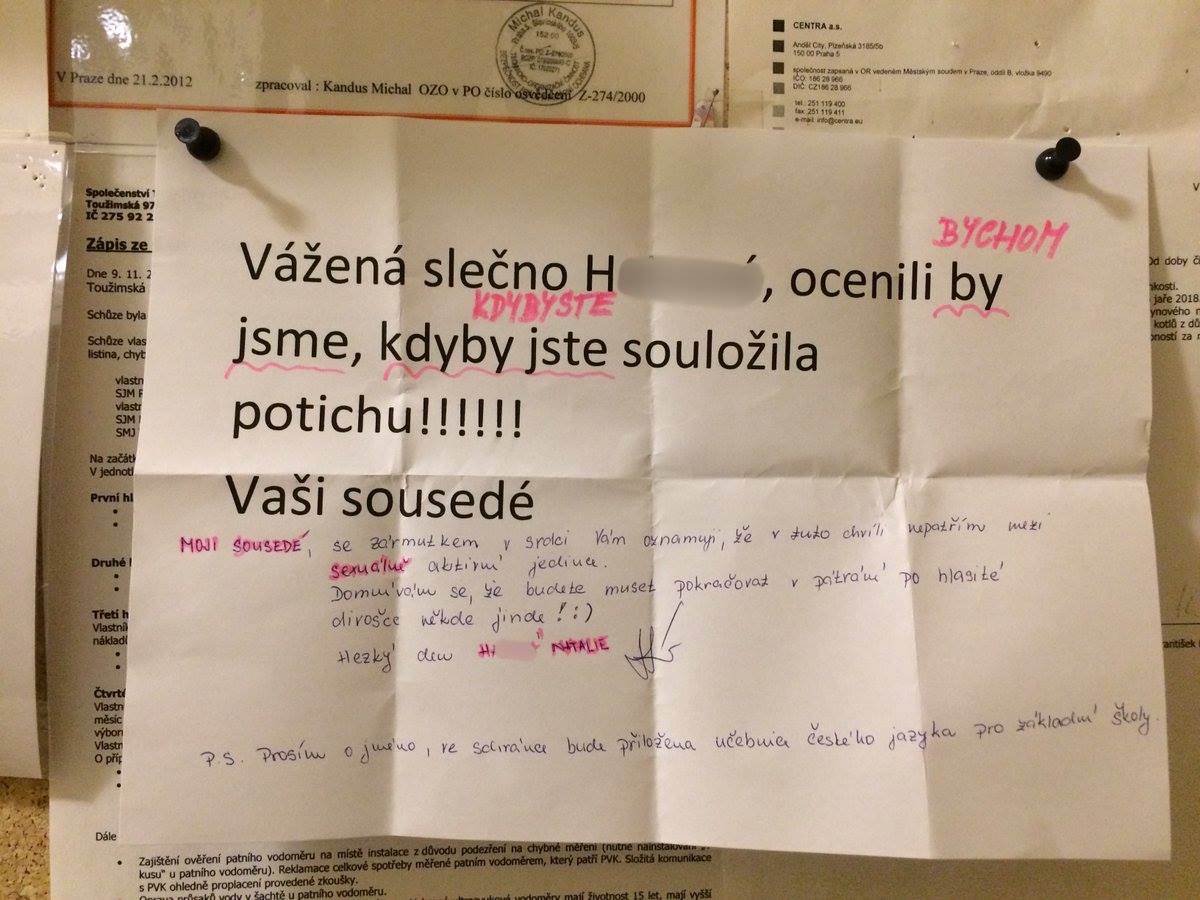 Michal Kandus
152 00
V Praze dne 21.2.2012
zpracoval : Kandus Michal OZO v PO číslo osvědčení Z-274/2000
CENTRA a.s.
Anděl City, Plzeňská 3185/5b
150 00 Praha 5
společnost zapsaná v OR vedeném Městským soudem v Praze, oddíl B, vložka 9490
IČO: 186 28 966
DIČ: CZ186 28 966
tel.: 251 119 400
fax: 251 119 411
e-mail: info@centra.eu
Společenství
Toužimská 97
IČ 275 92 2
Zápis ze
Dne 9. 11. 2
Toužimská
Schůze byla
Schůze vlas
listina, chyb
vlastn
SJM
vlastn
SJM
SMJ
Na začát
V jednotl
První hl
Druhé
Třetí h
Vlastník
nákladů
Čtvrté
Vlastn
měsíc
výbor
Vlastn
O příp
Dále
Od doby
jaře 2018.
ynového
kotlů z dů
František
BYCHOM
Vážená slečno H , ocenili by
KDYBYSTE
jsme, kdyby jste souložila
potichu!!!!!!
Vaši sousedé
MOJI SOUSEDÉ, se zármutkem v srdci Vám oznamuji, že v tuto chvíli nepatřím mezi
sexuálně aktivní jedince.
Domnívám se, že budete muset pokračovat v pátrání po hlasité
divošce někde jinde! :)
Hezký den H NATALIE
P.S. Prosím o jméno, ve schránce bude přiložena učebnice českého jazyka pro základní školy.
Zajištění ověření patního vodoměru na místě instalace z důvodu podezření na chybné měření (nutné nainstalování
kusu" u patního vodoměru). Reklamace celkové spotřeby měřené patním vodoměrem, který patří PVK. Složitá komunikace
s PVK ohledně proplacení provedené zkoušky.
Oprava průsaků vody v šachtě u patního vodoměru.
vodoměry mají životnost 15 let, mají vyšší